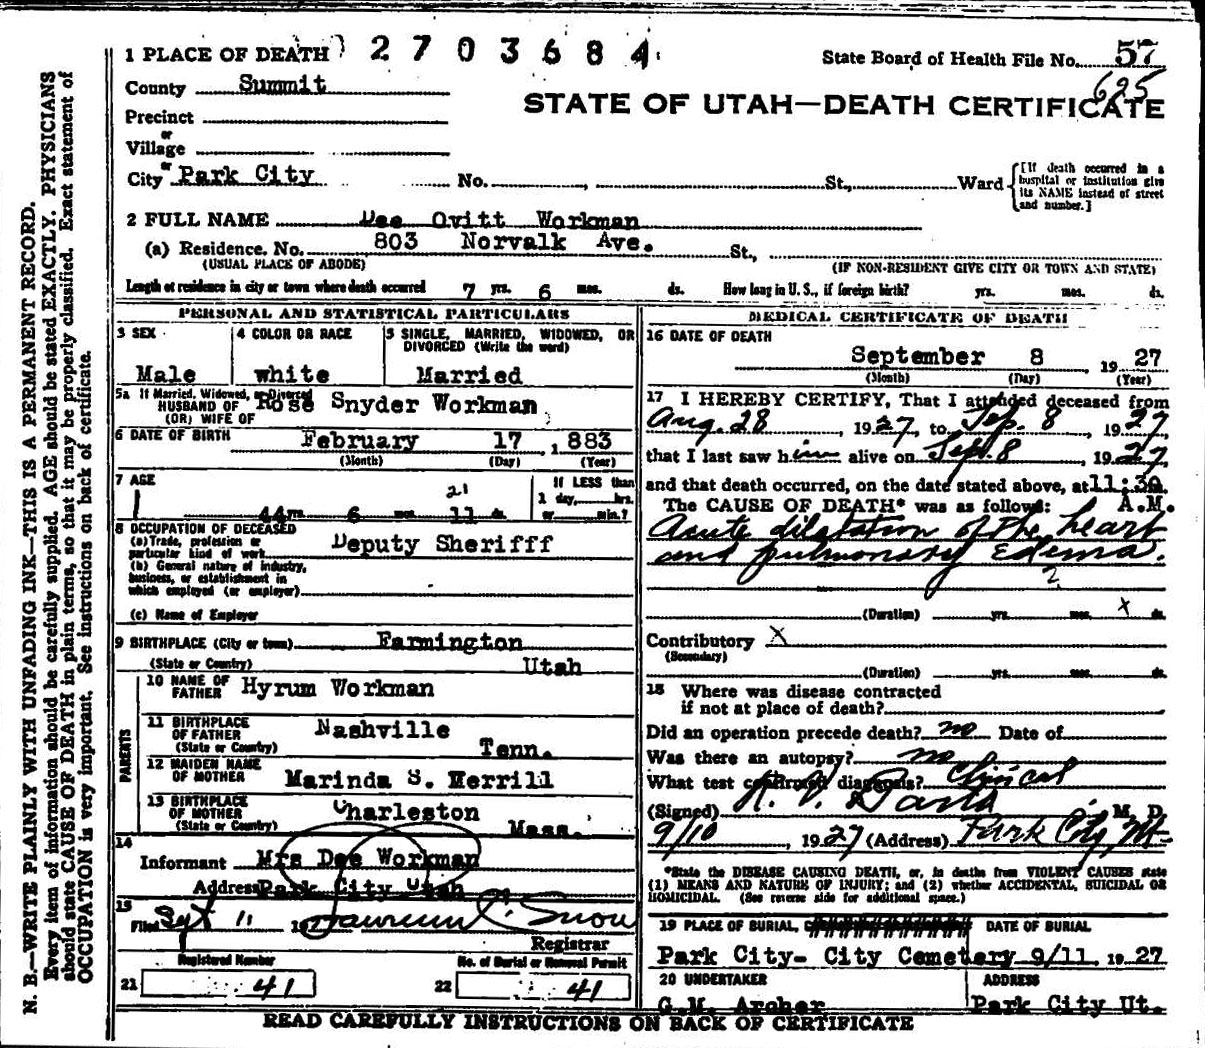 1 PLACE OF DEATH 2703684
State Board of Health File No. 57
625
County Summit
STATE OF UTAH—DEATH CERTIFICATE
Precinct
or
Village
or
City Park City No. St., Ward
[If death occurred in a hospital or institution give its NAME instead of street and number.]
2 FULL NAME Dee Ovitt Workman
(a) Residence. No. 803 Norvalk Ave. St.,
(USUAL PLACE OF ABODE) (IF NON-RESIDENT GIVE CITY OR TOWN AND STATE)
Length of residence in city or town where death occurred 7 yrs. 6 mos. ds. How long in U. S., if foreign birth? yrs. mos. ds.
PERSONAL AND STATISTICAL PARTICULARS
3 SEX
Male
4 COLOR OR RACE
white
5 SINGLE, MARRIED, WIDOWED, OR DIVORCED (Write the word)
Married
5a If Married, Widowed, or Divorced
HUSBAND OF Rose Snyder Workman
(OR) WIFE OF
6 DATE OF BIRTH February 17, 1883
(Month) (Day) (Year)
7 AGE
44 yrs. 6 mos. 11 ds.
21
If LESS than
1 day, hrs.
or min.?
8 OCCUPATION OF DECEASED
(a) Trade, profession or
particular kind of work Deputy Sherifff
(b) General nature of industry,
business, or establishment in
which employed (or employer)
(c) Name of Employer
9 BIRTHPLACE (City or town) Farmington
(State or Country) Utah
PARENTS
10 NAME OF
FATHER Hyrum Workman
11 BIRTHPLACE
OF FATHER Nashville
(State or Country) Tenn.
12 MAIDEN NAME
OF MOTHER Marinda S. Merrill
13 BIRTHPLACE
OF MOTHER Charleston
(State or Country) Mass.
14
Informant Mrs Dee Workman
Address Park City Utah
15
Filed Sept 11 19 Snow
Registrar
Registered Number
21 41
No. of Burial or Removal Permit
22 41
MEDICAL CERTIFICATE OF DEATH
16 DATE OF DEATH
September 8 1927
(Month) (Day) (Year)
17 I HEREBY CERTIFY, That I attended deceased from
Aug. 28, 1927, to Sep. 8, 1927
that I last saw him alive on Sept. 8, 1927
and that death occurred, on the date stated above, at 11:30
The CAUSE OF DEATH* was as follows: A.M.
Acute dilatation of the heart
and pulmonary Edema.
?
(Duration) yrs. mos. x ds.
Contributory X
(Secondary)
(Duration) yrs. mos. ds.
18 Where was disease contracted
if not at place of death?
Did an operation precede death? no Date of
Was there an autopsy? no
What test confirmed diagnosis? Clinical
(Signed) M. D.
9/10, 1927 (Address) Park City, Ut.
*State the DISEASE CAUSING DEATH, or, in deaths from VIOLENT CAUSES state
(1) MEANS AND NATURE OF INJURY; and (2) whether ACCIDENTAL, SUICIDAL OR
HOMICIDAL. (See reverse side for additional space.)
19 PLACE OF BURIAL, DATE OF BURIAL
Park City- City Cemetery 9/11, 1927
20 UNDERTAKER ADDRESS
G.M. Archer Park City Ut.
READ CAREFULLY INSTRUCTIONS ON BACK OF CERTIFICATE
N. B.—WRITE PLAINLY WITH UNFADING INK—THIS IS A PERMANENT RECORD.
Every item of information should be carefully supplied. AGE should be stated EXACTLY. PHYSICIANS
should state CAUSE OF DEATH in plain terms, so that it may be properly classified. Exact statement of
OCCUPATION is very important. See instructions on back of certificate.